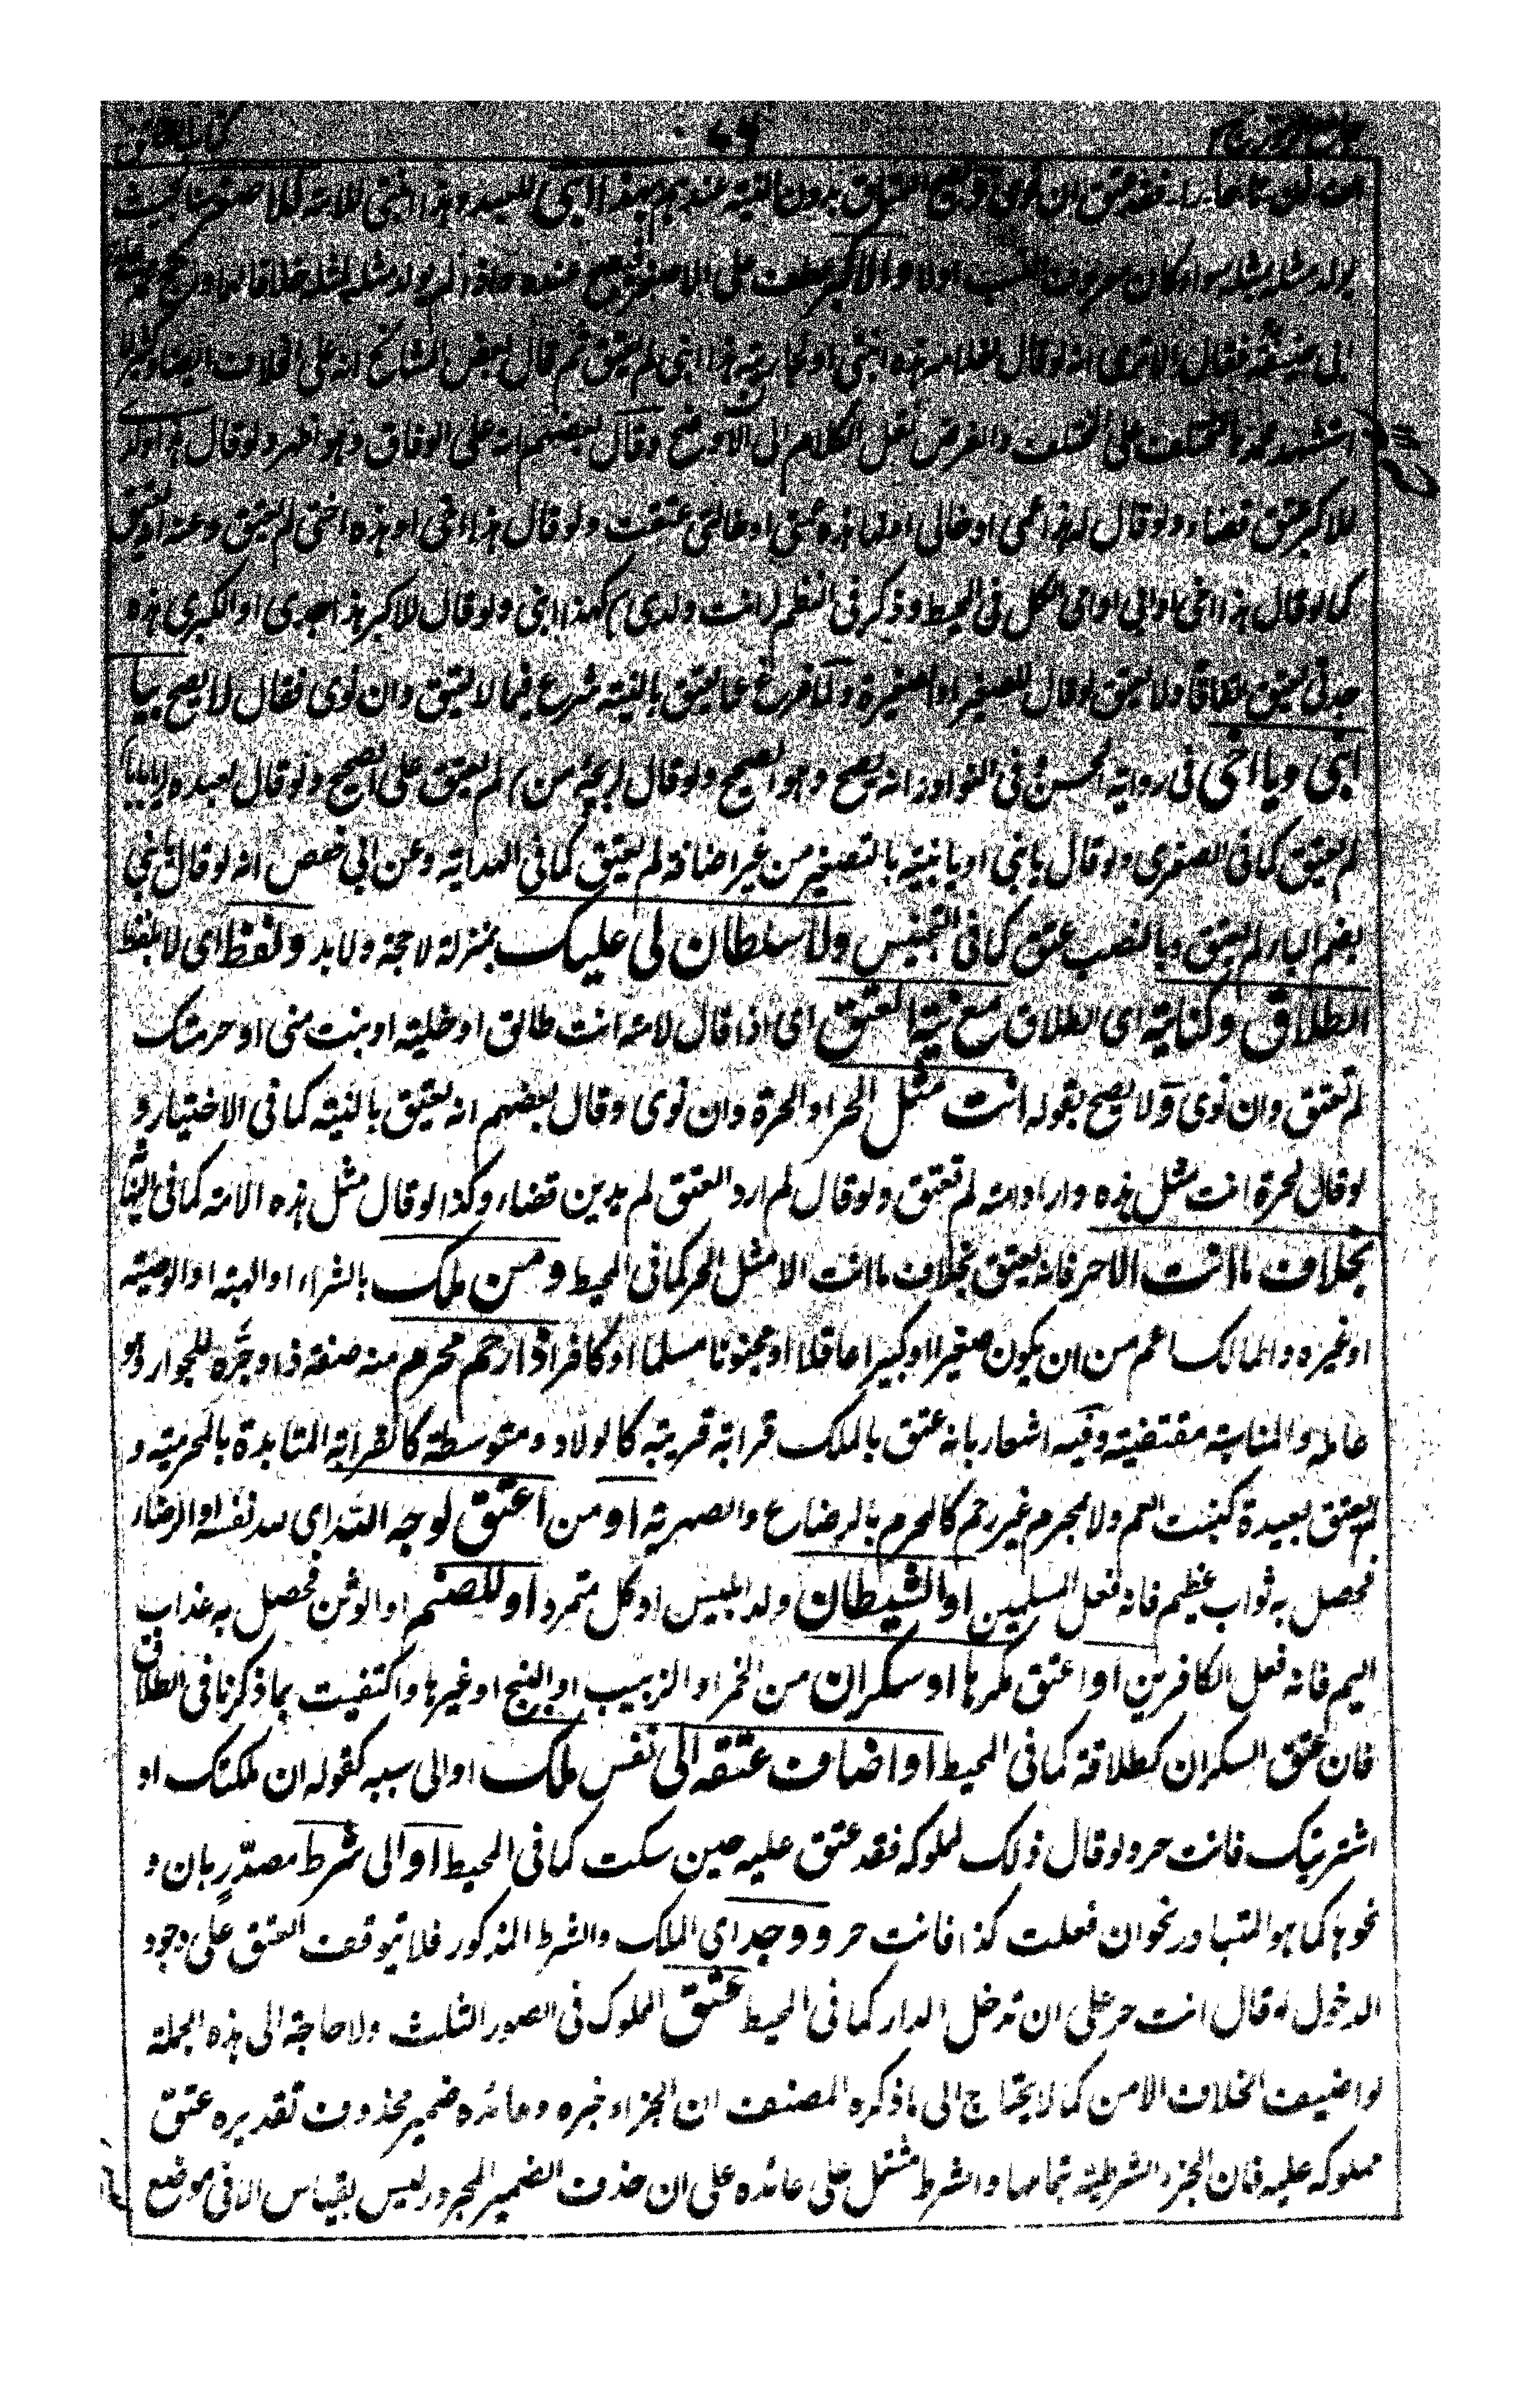 كتاب العتاق
بدون النية عندهم بهذا ابنى للعبد وهذا ابنتى للامة
يولد مثله لمثله سواء كان معروف النسب اولا والاكبر عطف على الاصغر
فقال الاترى انه لو قال لغلامه هذه ابنتى او لجاريته هذا ابنى لم يعتق ثم قال بعض المشائخ انه على الخلاف ايضا
نقل الكلام الى الاوضح وقال بعضهم انه على الوفاق وهو اظهر ولو قال هذا ولدى
للاكبر عتق قضاء ولو قال هذا عمى او خالى او هذه عمتى او خالتى عتقت ولو قال هذا اخى او هذه اختى لم يعتق وعنه انه يعتق
كما لو قال هذا اخى لابى او امى الكل فى المحيط وذكر فى النظم انت ولدى كهذا ابنى ولو قال للاكبر هذا جدى او الكبرى هذه
جدتى يعتق ولا يعتق لو قال للصغير او الصغيرة ولما فرغ مما يعتق بالنية شرع فيما لا يعتق وان نوى فقال لا يصح بيا
ابنى ويا اخى فى رواية الحسن فى النوادر انه يصح وهو الصحيح ولو قال لم يعتق على الصحيح ولو قال لعبده
لم يعتق كما فى الصغرى ولو قال يا بنى او يا بنية بالتصغير من غير اضافة لم يعتق كما فى الهداية وعن ابى حفص انه لو قال يا بنى
بضم الباء لم يعتق وبالنصب عتق كما فى التجنيس ولا سلطان لى عليك بمنزلة لا حجة ولا يد ولفظ اى لا بلفظ
الطلاق وكناية اى الطلاق مع نية العتق اى اذا قال لامته انت طالق او خلية او بنت منى او حرمتك
لم تعتق وان نوى ولا يصح بقوله انت مثل الحر او الحرة وان نوى وقال بعضهم انه يعتق بالنية كما فى الاختيار و
لو قال لحرة انت مثل هذه واراد امته لم تعتق ولو قال لم ارد العتق لم يدين قضاء وكذا لو قال مثل هذه الامة كما فى
بخلاف ما انت الا حر فانه يعتق بخلاف ما انت الا مثل الحر كما فى المحيط ومن ملك بالشراء او الهبة او الوصية
او غيره والمالك اعم من ان يكون صغيرا او كبيرا عاقلا او مجنونا مسلما او كافرا ذا رحم محرم منه صفة ذا وجره للجوار وهو
عامله والمناسبة مقتضية وفيه اشعار بانه عتق بالملك قرابة قريبة كالولاد ومتوسطة كالقرابة المتابدة بالمحرمية و
لم يعتق بعيدة كبنت العم ولا محرم غير رحم كالمحرم بالرضاع والصهرية او من اعتق لوجه الله اى لله نفسه او الرضاء
فحصل به ثواب عظيم فانه فعل المسلمين او الشيطان ولد ابليس او كل متمرد او للصنم او الوثن فحصل به عذاب
اليم فانه فعل الكافرين او اعتق مكرها او سكران من الخمر او الزبيب او البنج او غيرها واكتفيت بما ذكرنا فى الطلاق
فان عتق السكران كطلاقه كما فى المحيط او اضاف عتقه الى نفس ملك او الى سببه كقوله ان ملكتك او
اشتريتك فانت حر ولو قال ذلك لمملوكه فقد عتق عليه حين سكت كما فى المحيط او الى شرط مصدّر بان و
نحوها كما هو المتبادر نحو ان فعلت كذا فانت حر ووجد اى الملك والشرط المذكور فلا يتوقف العتق على وجود
الدخول لو قال انت حر على ان تدخل الدار كما فى المحيط عتق المملوك فى الصور الثلث ولا حاجة الى هذه الجملة
لو اضيف الخلاف الا من كما لا يحتاج الى ما ذكره المصنف ان الجزاء خبره وعائده ضمير محذوف تقديره عتق
مملوكه عليه فان الجزء الشرطية بتمامها والشرط مشتمل على عائده على ان حذف الضمير المجرور ليس بقياس الا فى موضع